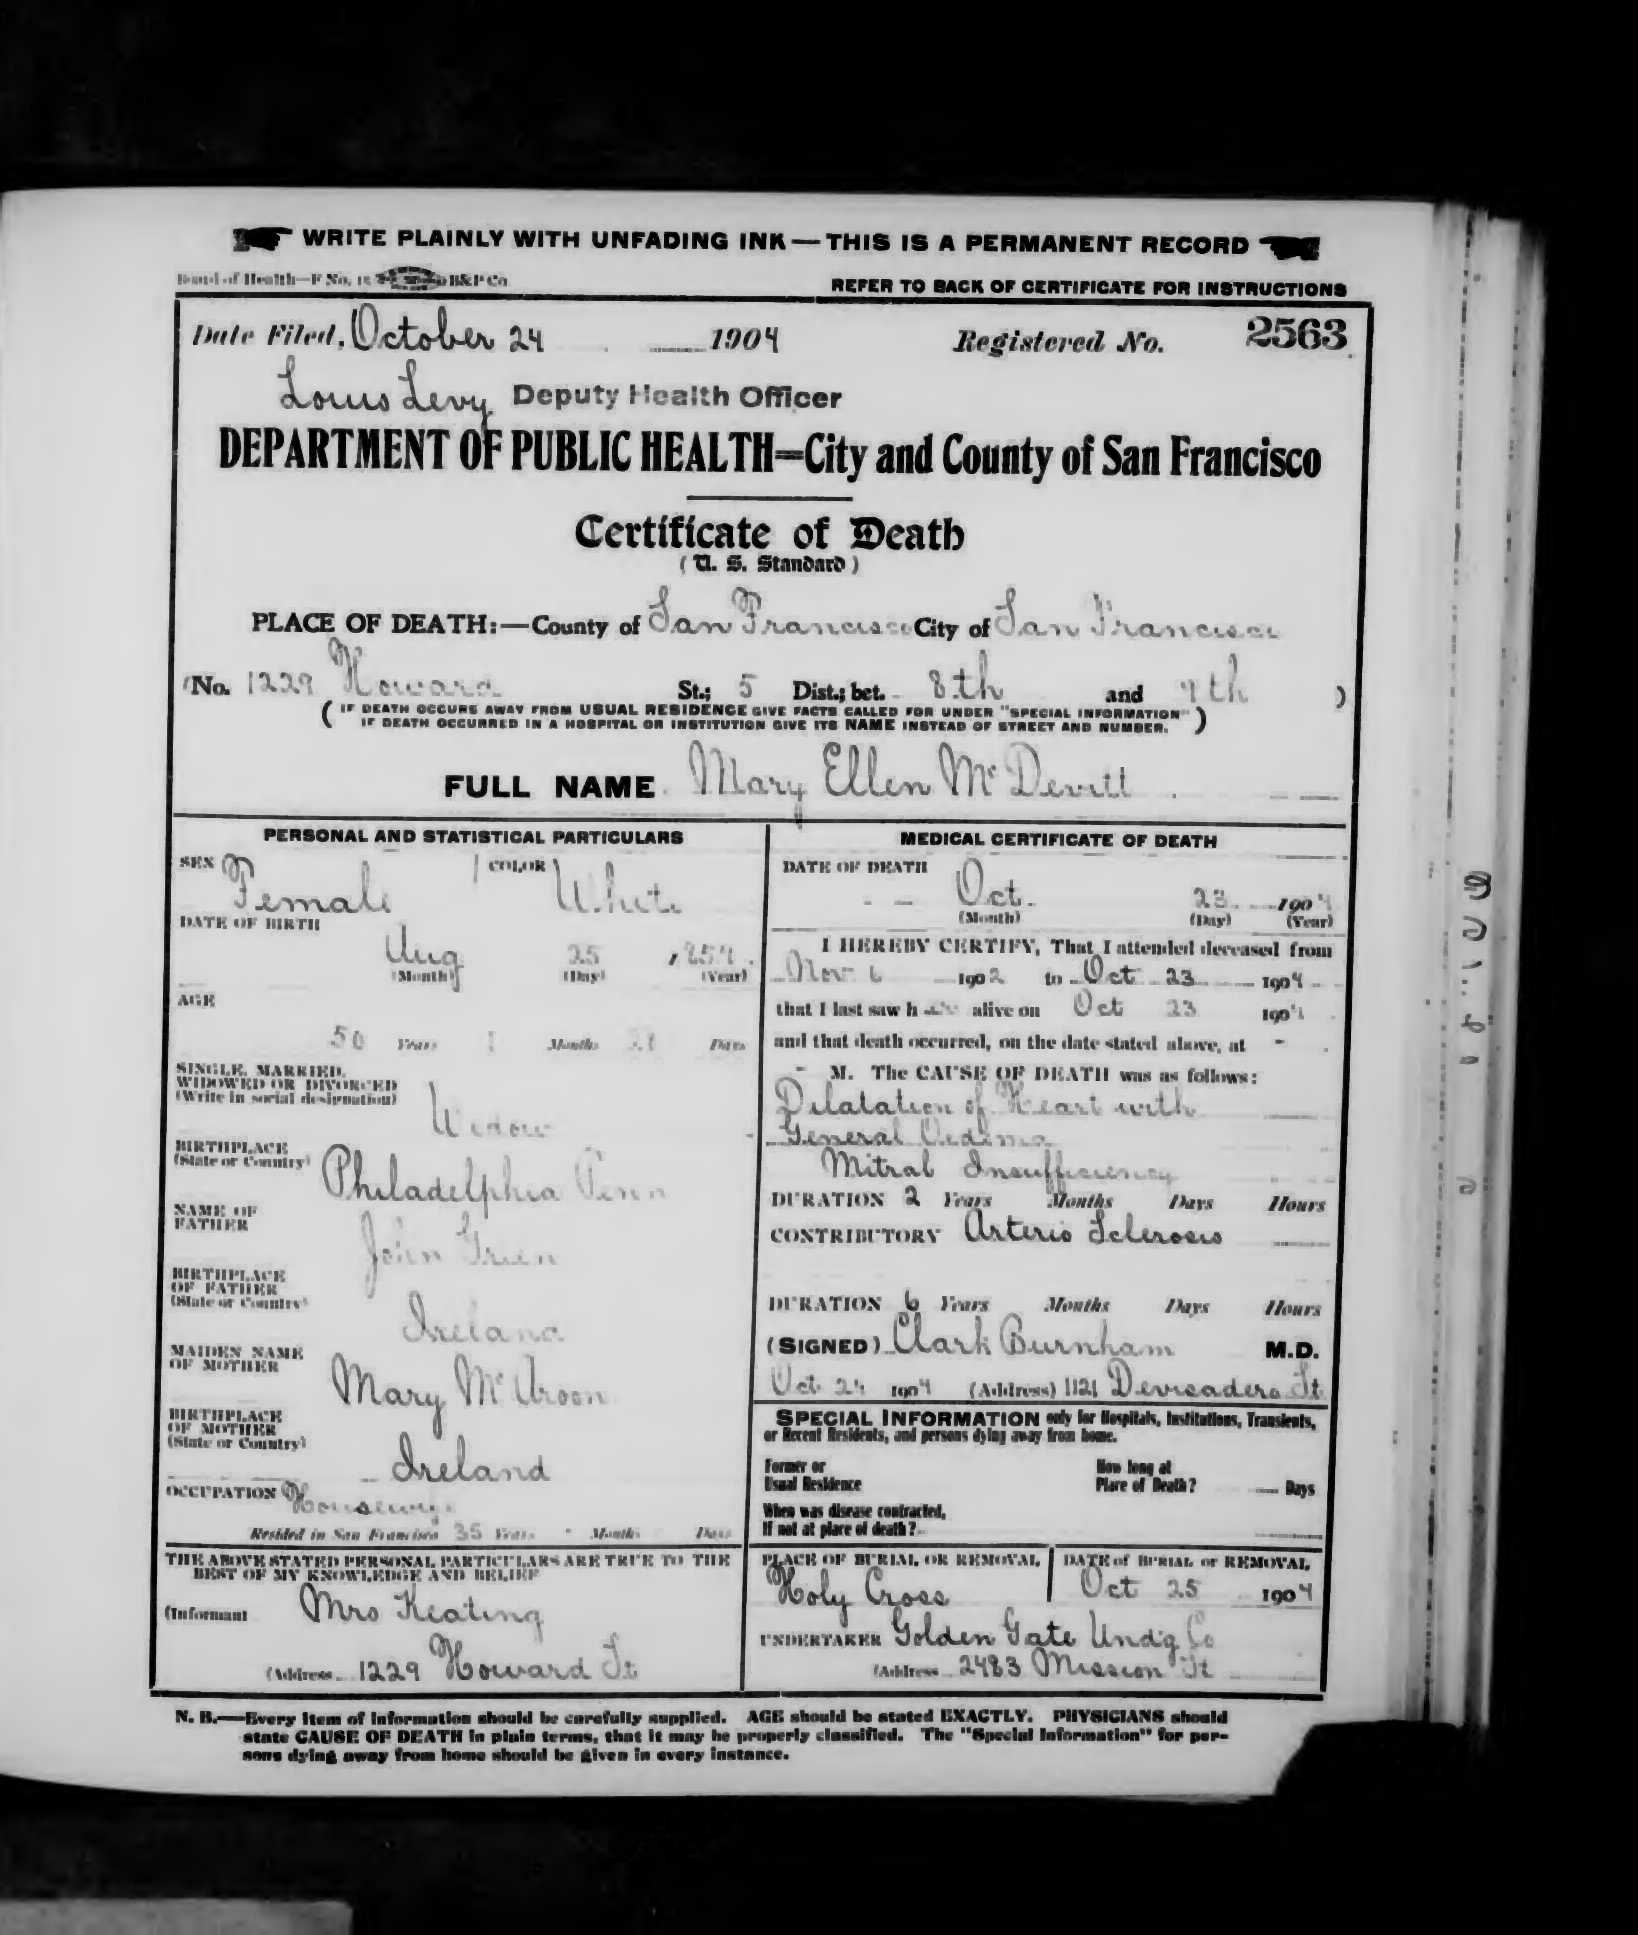 WRITE PLAINLY WITH UNFADING INK — THIS IS A PERMANENT RECORD
Board of Health—F No. B&P Co
REFER TO BACK OF CERTIFICATE FOR INSTRUCTIONS
Date Filed, October 24 1904 Registered No. 2563
Louis Levy Deputy Health Officer
DEPARTMENT OF PUBLIC HEALTH=City and County of San Francisco
Certificate of Death
(U. S. Standard)
PLACE OF DEATH:—County of San Francisco City of San Francisco
(No. 1229 Howard St.; 5 Dist.; bet. 8th and 9th )
( IF DEATH OCCURS AWAY FROM USUAL RESIDENCE GIVE FACTS CALLED FOR UNDER "SPECIAL INFORMATION"
IF DEATH OCCURRED IN A HOSPITAL OR INSTITUTION GIVE ITS NAME INSTEAD OF STREET AND NUMBER. )
FULL NAME Mary Ellen McDevitt
PERSONAL AND STATISTICAL PARTICULARS
SEX Female COLOR White
DATE OF BIRTH
Aug 25 1854
(Month) (Day) (Year)
AGE
50 Years 1 Months Days
SINGLE, MARRIED,
WIDOWED OR DIVORCED
(Write in social designation)
Widow
BIRTHPLACE
(State or Country)
Philadelphia Penn
NAME OF
FATHER
John Green
BIRTHPLACE
OF FATHER
(State or Country)
Ireland
MAIDEN NAME
OF MOTHER
Mary McAroon
BIRTHPLACE
OF MOTHER
(State or Country)
Ireland
OCCUPATION Housewife
Resided in San Francisco 35 Years - Months Days
THE ABOVE STATED PERSONAL PARTICULARS ARE TRUE TO THE
BEST OF MY KNOWLEDGE AND BELIEF
(Informant Mrs Keating
(Address 1229 Howard St
MEDICAL CERTIFICATE OF DEATH
DATE OF DEATH
Oct. 23 1904
(Month) (Day) (Year)
I HEREBY CERTIFY, That I attended deceased from
Nov 6 1902 to Oct 23 1904
that I last saw her alive on Oct 23 1904
and that death occurred, on the date stated above, at -
- M. The CAUSE OF DEATH was as follows:
Dilatation of Heart with
General Oedema
Mitral Insufficiency
DURATION 2 Years Months Days Hours
CONTRIBUTORY Arterio Sclerosis
DURATION 6 Years Months Days Hours
(SIGNED) Clark Burnham M.D.
Oct 24 1904 (Address) 1121 Devisadero St
SPECIAL INFORMATION only for Hospitals, Institutions, Transients,
or Recent Residents, and persons dying away from home.
Former or
Usual Residence
How long at
Place of Death? Days
When was disease contracted,
If not at place of death?
PLACE OF BURIAL OR REMOVAL
Holy Cross
DATE of BURIAL or REMOVAL
Oct 25 1904
UNDERTAKER Golden Gate Und'g Co
(Address 2483 Mission St
N. B.—Every item of information should be carefully supplied. AGE should be stated EXACTLY. PHYSICIANS should
state CAUSE OF DEATH in plain terms, that it may be properly classified. The "Special Information" for per-
sons dying away from home should be given in every instance.